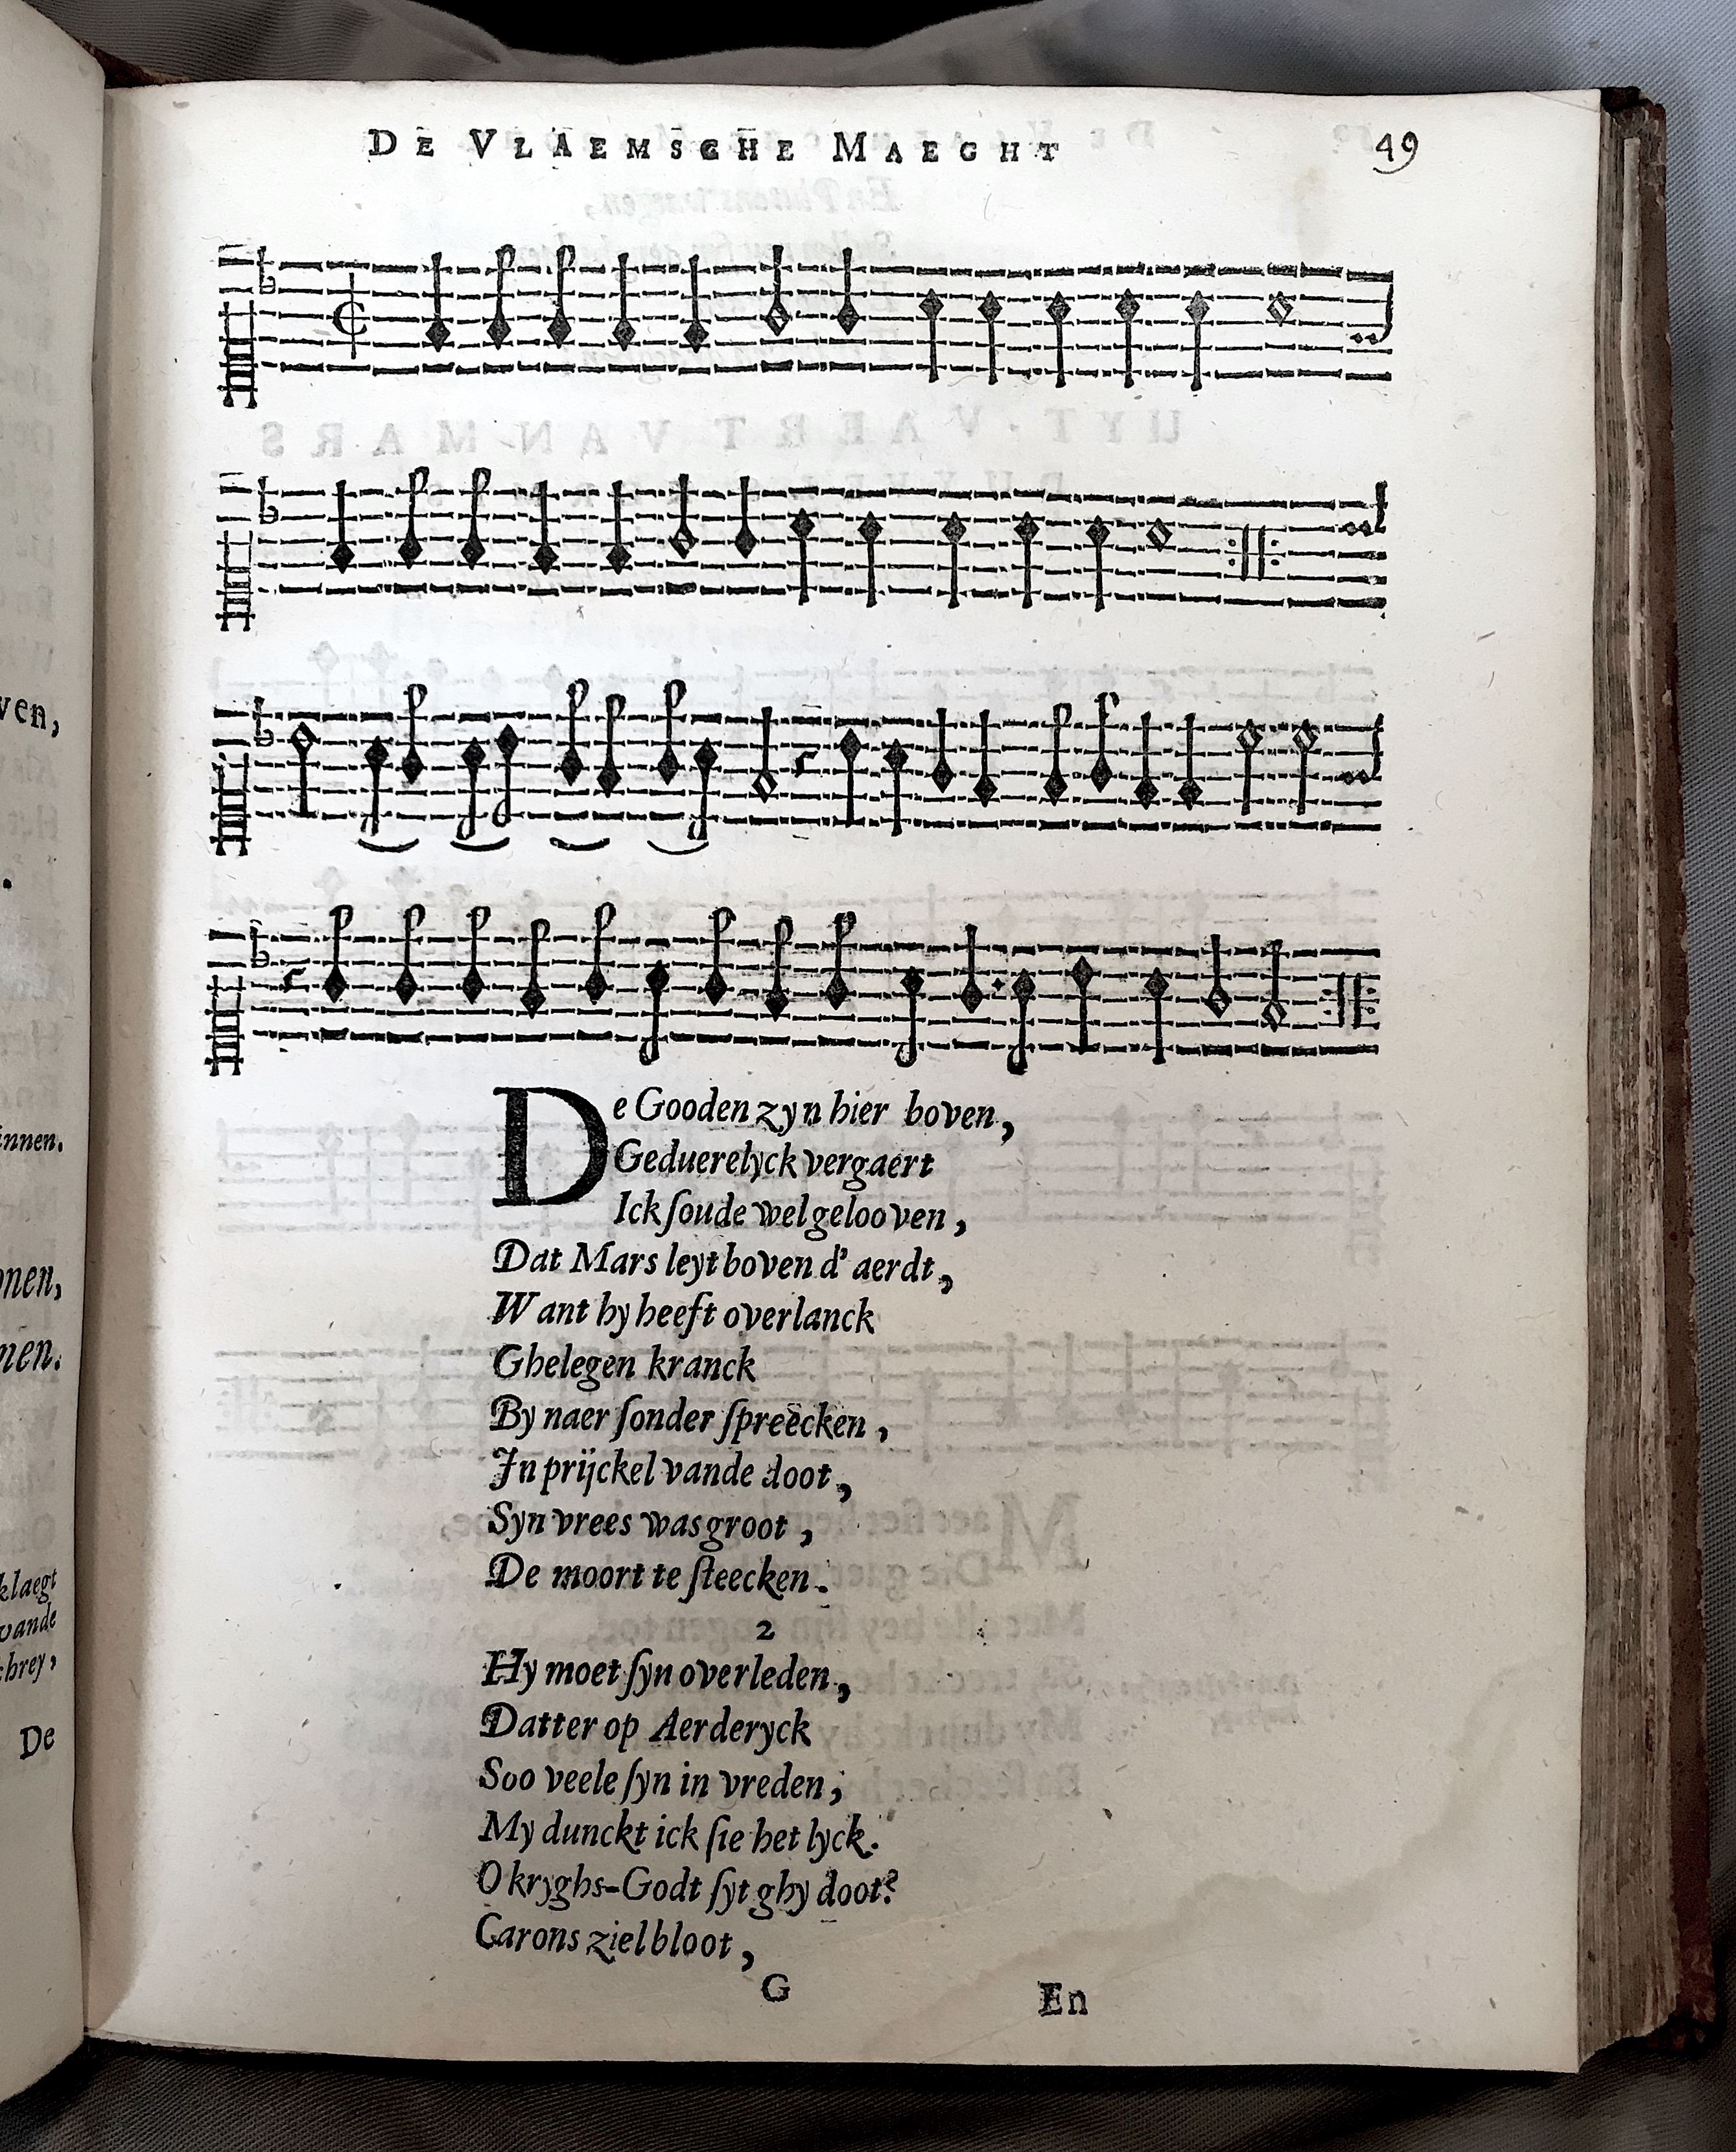 DE VLAEMSCHE MAEGHT 49
De Gooden zyn hier boven,
Geduerelyck vergaert
Ick ſoude wel gelooven,
Dat Mars leyt boven d' aerdt,
Want hy heeft overlanck
Ghelegen kranck
By naer ſonder ſpreecken,
In prijckel vande doot,
Syn vrees was groot,
De moort te ſteecken.
2
Hy moet ſyn overleden,
Datter op Aerderyck
Soo veele ſyn in vreden;
My dunckt ick ſie het lyck.
O kryghs-Godt ſyt ghy doot?
Carons ziel bloot,
G En
ven,
innen.
nen,
nen.
klaegt
vande
chrey,
De